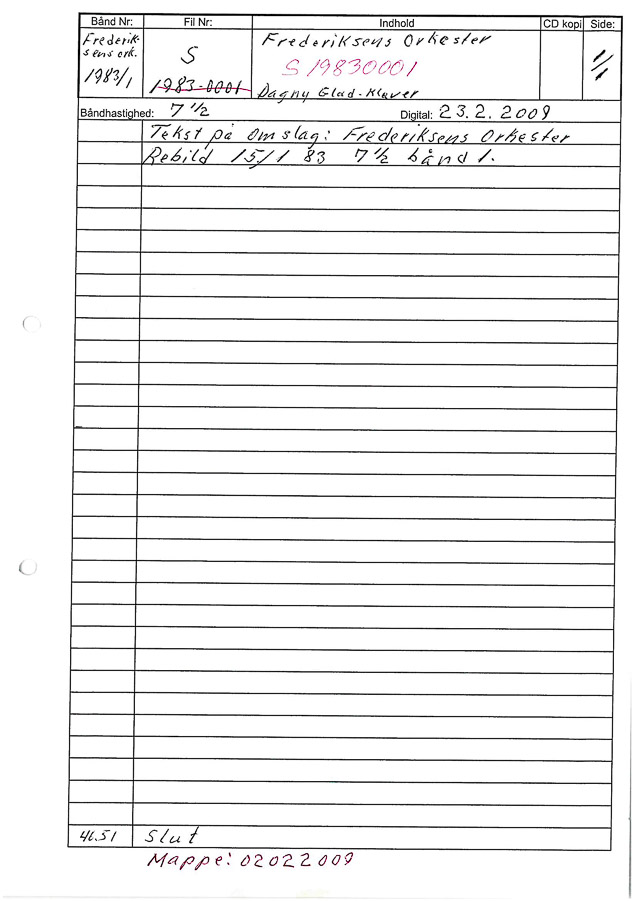 Bånd Nr: Fil Nr: Indhold CD kopi Side:
Frederik-
sens ork.
1983/1
S
1983-0001
Frederiksens Orkester
S 19830001
Dagny Glad-Klaver
1/1
Båndhastighed: 7 ½ Digital: 23.2. 2009
Tekst på omslag: Frederiksens Orkester
Rebild 15/1 83 7 ½ bånd 1.
46.51 Slut
Mappe: 02022009